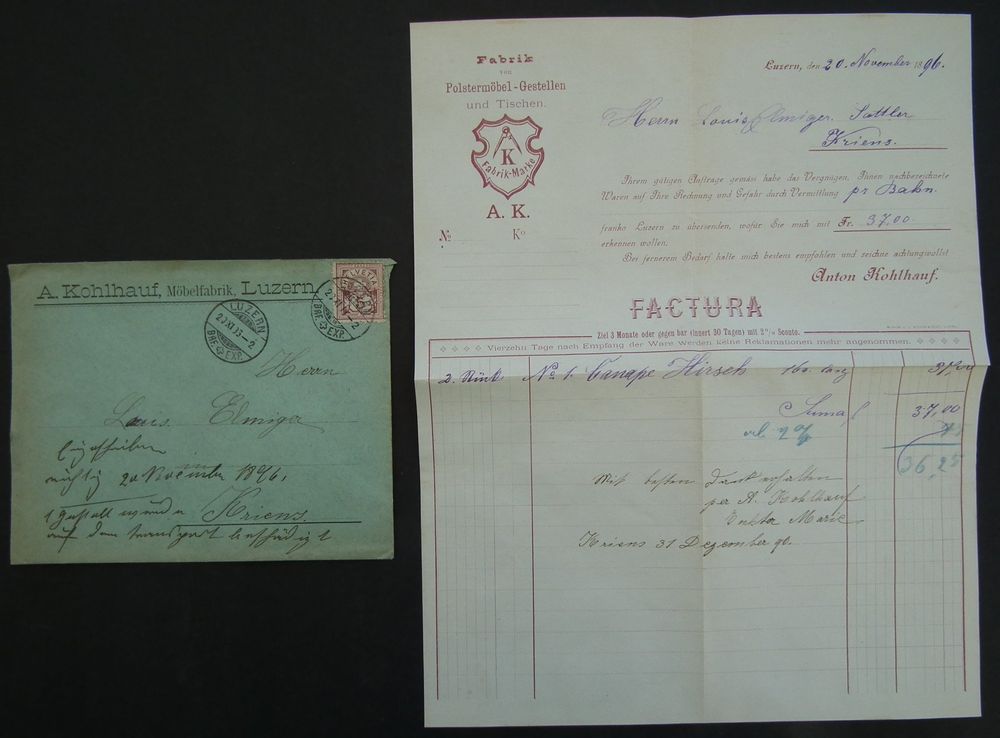 A. Kohlhauf, Möbelfabrik, Luzern
HELVETIA
LUZERN
BRF. EXP.
Herrn
Louis Elmiger
20 November 1896.
Kriens.
auf dem transport beschädigt
Fabrik
von
Polstermöbel-Gestellen
und Tischen.
K
Fabrik-Marke
A. K.
№ K⁰
Luzern, den 20. November 1896.
Herrn Louis Elmiger. Sattler
Kriens.
Ihrem gütigen Auftrage gemäss habe das Vergnügen, Ihnen nachbezeichnete
Waren auf Ihre Rechnung und Gefahr durch Vermittlung pr Bahn.
franko Luzern zu übersenden, wofür Sie mich mit Fr. 37.00
erkennen wollen.
Bei fernerem Bedarf halte mich bestens empfohlen und zeichne achtungsvollst
Anton Kohlhauf.
FACTURA
Ziel 3 Monate oder gegen bar (innert 30 Tagen) mit 2% Sconto.
Vierzehn Tage nach Empfang der Ware werden keine Reklamationen mehr angenommen.
2. Stück No 1. Canape Hirsch
Suma 37,00
36,25
Mit bestem Dank erhalten
per A. Kohlhauf
Marie
Kriens 31 Dezember 96.